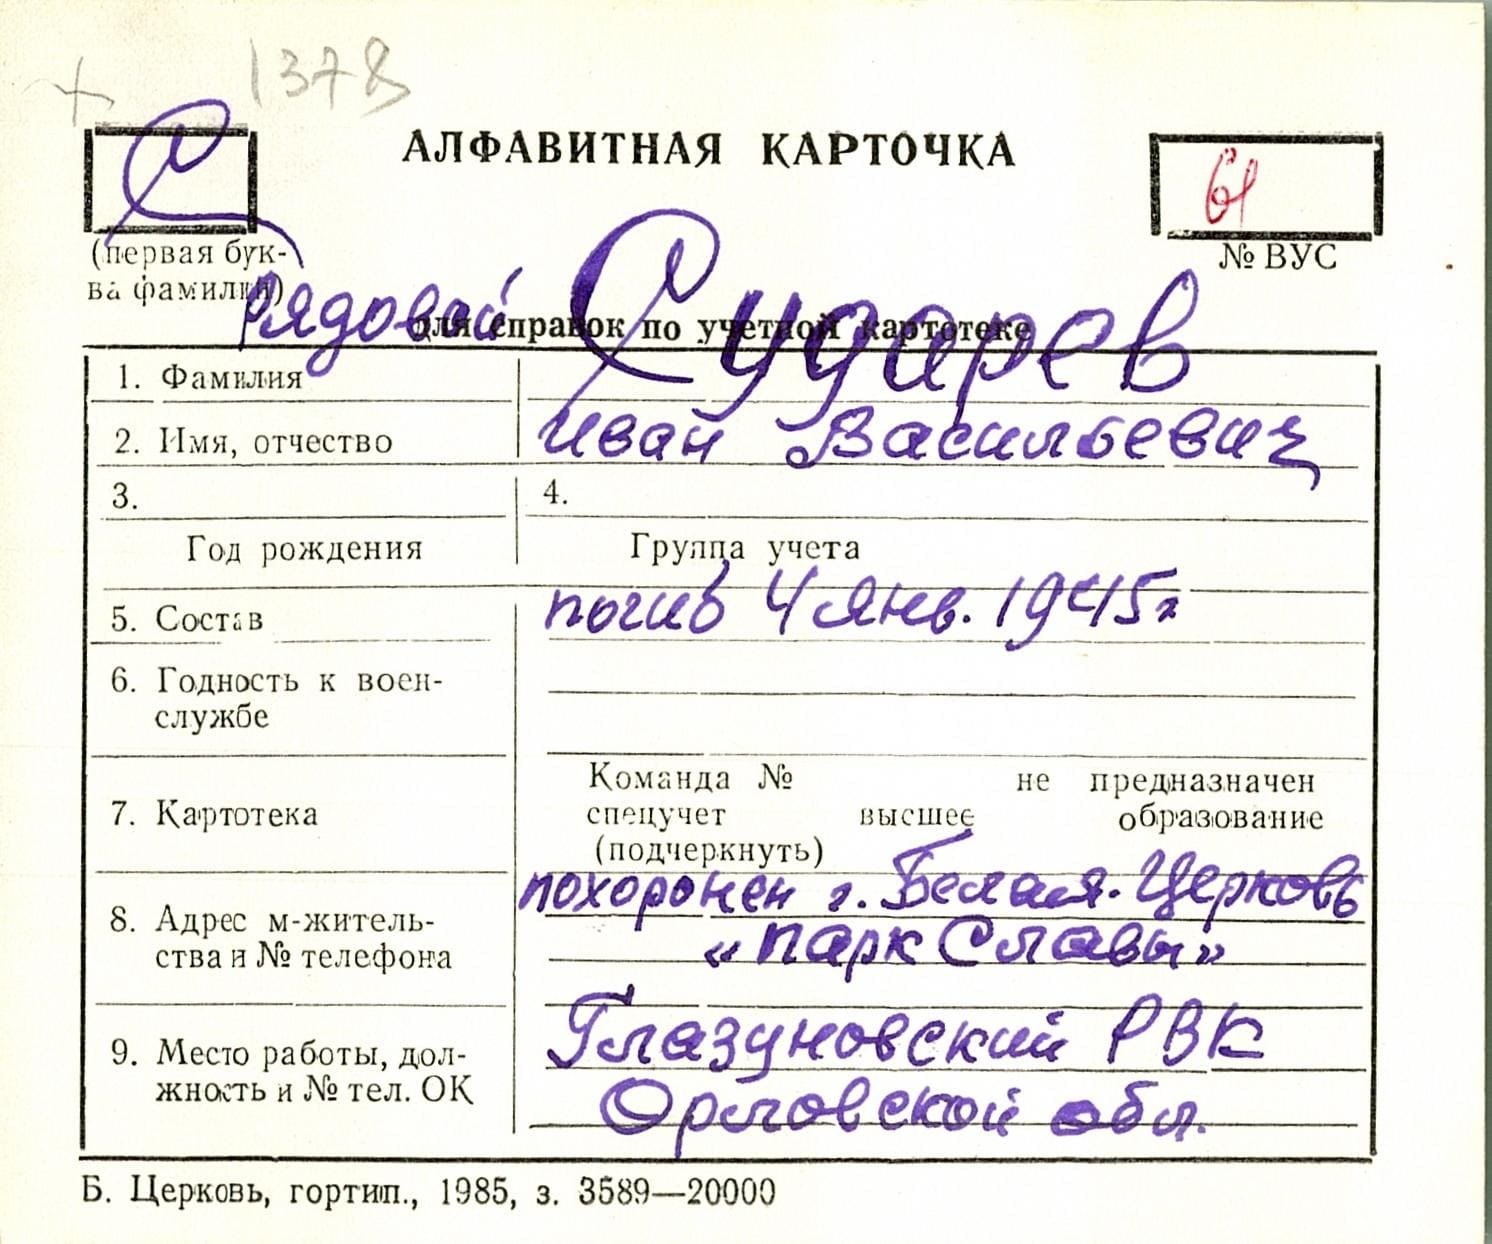 1378
С
АЛФАВИТНАЯ КАРТОЧКА
61
(первая бук-
ва фамилии)
№ ВУС
Рядовой Сударев
для справок по учетной картотеке
1. Фамилия
2. Имя, отчество Иван Васильевич
3. 4.
Год рождения Группа учета
5. Состав погиб 4 янв. 1945г
6. Годность к воен-
службе
Команда № не предназначен
7. Картотека спецучет высшее образование
(подчеркнуть)
похоронен г. Белая-Церковь
8. Адрес м-житель-
«парк Славы»
ства и № телефона
Глазуновский РВК
9. Место работы, дол-
жность и № тел. ОК
Орловской обл.
Б. Церковь, гортип., 1985, з. 3589—20000